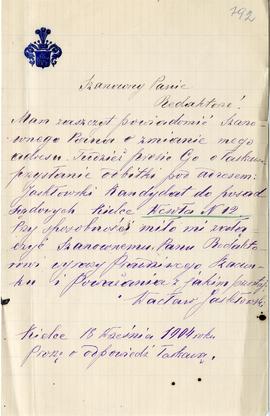 792
Szanowny Panie
Redaktorze!
Mam zaszczyt powiadomić Szano-
wnego Pana o zmianie mego
adresu. Tudzież proszę Go o łaskawe
przysłanie odbitki pod adresem:
Jaxtkowski Kandydat do posad
Sądowych Kielce N 12
Przy sposobności miło mi zała-
czyć Szanownemu Panu Redakto-
rowi wyrazy prawdziwego Szacun-
ku i Poważania z jakim
Wacław
Kielce 13 Września 1904 roku
Proszę o odpowiedź Łaskawą.